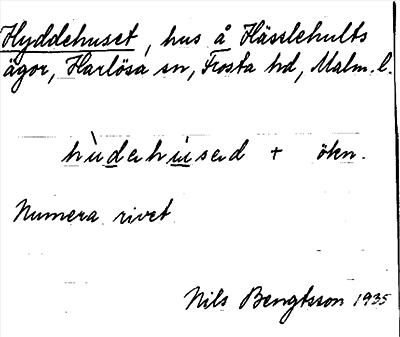 Hyddehuset, hus å Hässlehults
ägor, Harlösa sn, Frosta hd, Malm. l.
hùdahúsad + ökn.
Numera rivet
Nils Bengtsson 1935